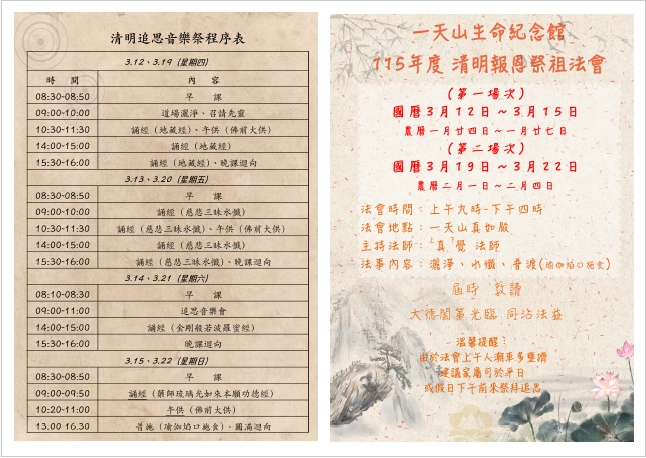 清明追思音樂祭程序表
3.12、3.19 (星期四)
時 間 內 容
08:30-08:50 早 課
09:00-10:00 道場灑淨、召請先靈
10:30-11:30 誦經 (地藏經)、午供 (佛前大供)
14:00-15:00 誦經 (地藏經)
15:30-16:00 誦經 (地藏經)、晚課迴向
3.13、3.20 (星期五)
08:30-08:50 早 課
09:00-10:00 誦經 (慈悲三昧水懺)
10:30-11:30 誦經 (慈悲三昧水懺)、午供 (佛前大供)
14:00-15:00 誦經 (慈悲三昧水懺)
15:30-16:00 誦經 (慈悲三昧水懺)、晚課迴向
3.14、3.21 (星期六)
08:10-08:30 早 課
09:00-11:00 追思音樂會
14:00-15:00 誦經 (金剛般若波羅蜜經)
15:30-16:00 晚課迴向
3.15、3.22 (星期日)
08:30-08:50 早 課
09:00-09:50 誦經 (藥師琉璃光如來本願功德經)
10:20-11:00 午供 (佛前大供)
13.00 16.30 普施 (瑜伽焰口施食)、圓滿迴向
一天山生命紀念館
115年度 清明報恩祭祖法會
(第一場次)
國曆3月12日~3月15日
農曆一月廿四日~一月廿七日
(第二場次)
國曆3月19日~3月22日
農曆二月一日~二月四日
法會時間：上午九時-下午四時
法會地點：一天山真如殿
主持法師：「真」覺 法師
法事內容：灑淨、水懺、普渡(瑜伽焰口施食)
屆時 敬請
大德闔第光臨 同沾法益
溫馨提醒：
由於法會上午人潮車多壅擠
建議家屬可於平日
或假日下午前來祭拜追思